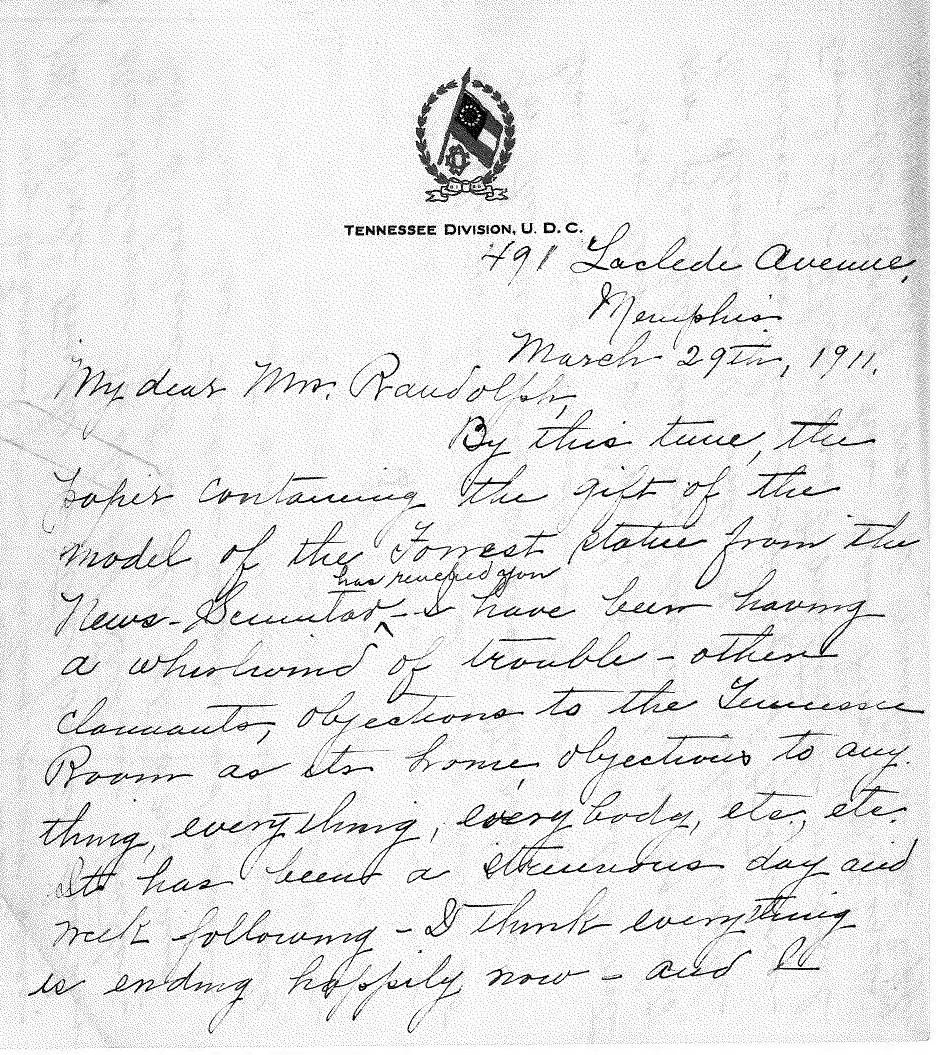 TENNESSEE DIVISION, U. D. C.
491 Laclede Avenue,
Memphis.
March 29th, 1911.
My dear Mrs. Randolph,
By this time, the
paper containing the gift of the
model of the Forrest statue from the
has reached you
News-Scimitar - I have been having
a whirlwind of trouble - other
claimants, objections to the Tennessee
Room as its home, objections to any
thing, everything, everybody, etc., etc.
It has been a strenuous day and
week following - I think everything
is ending happily now - and I